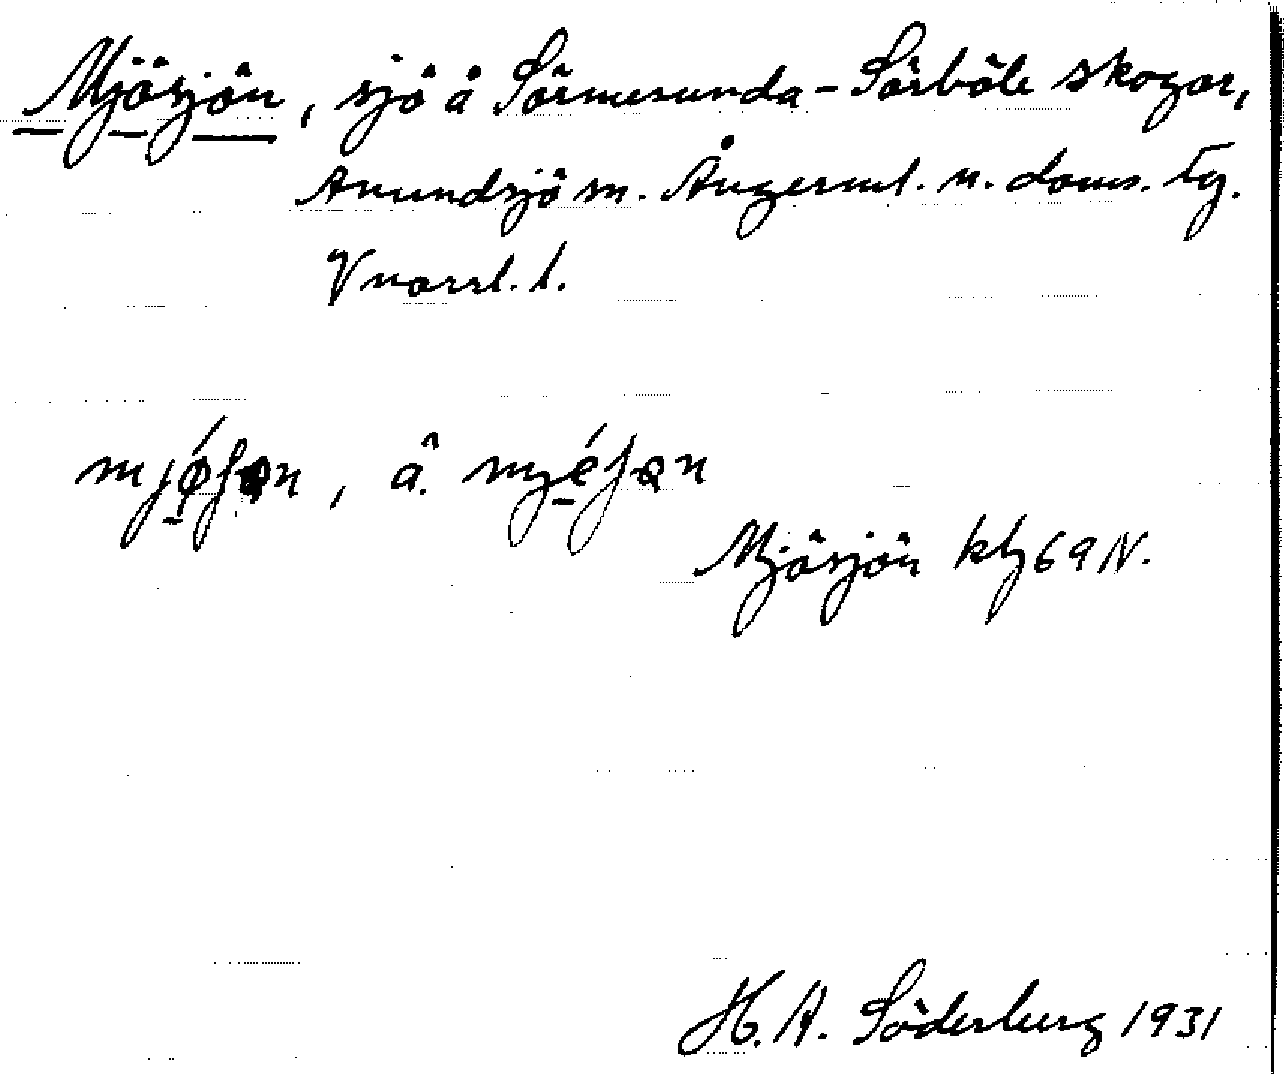 Mjösjön, sjö å Sörmesunda-Sörböle skogar,
Anundsjö sn. Ångerml. n. doms. tg.
Vnorrl. l.
mjǿʃən, â. myéʃən
Mjösjön kbl 69 N.
H. A. Söderberg 1931